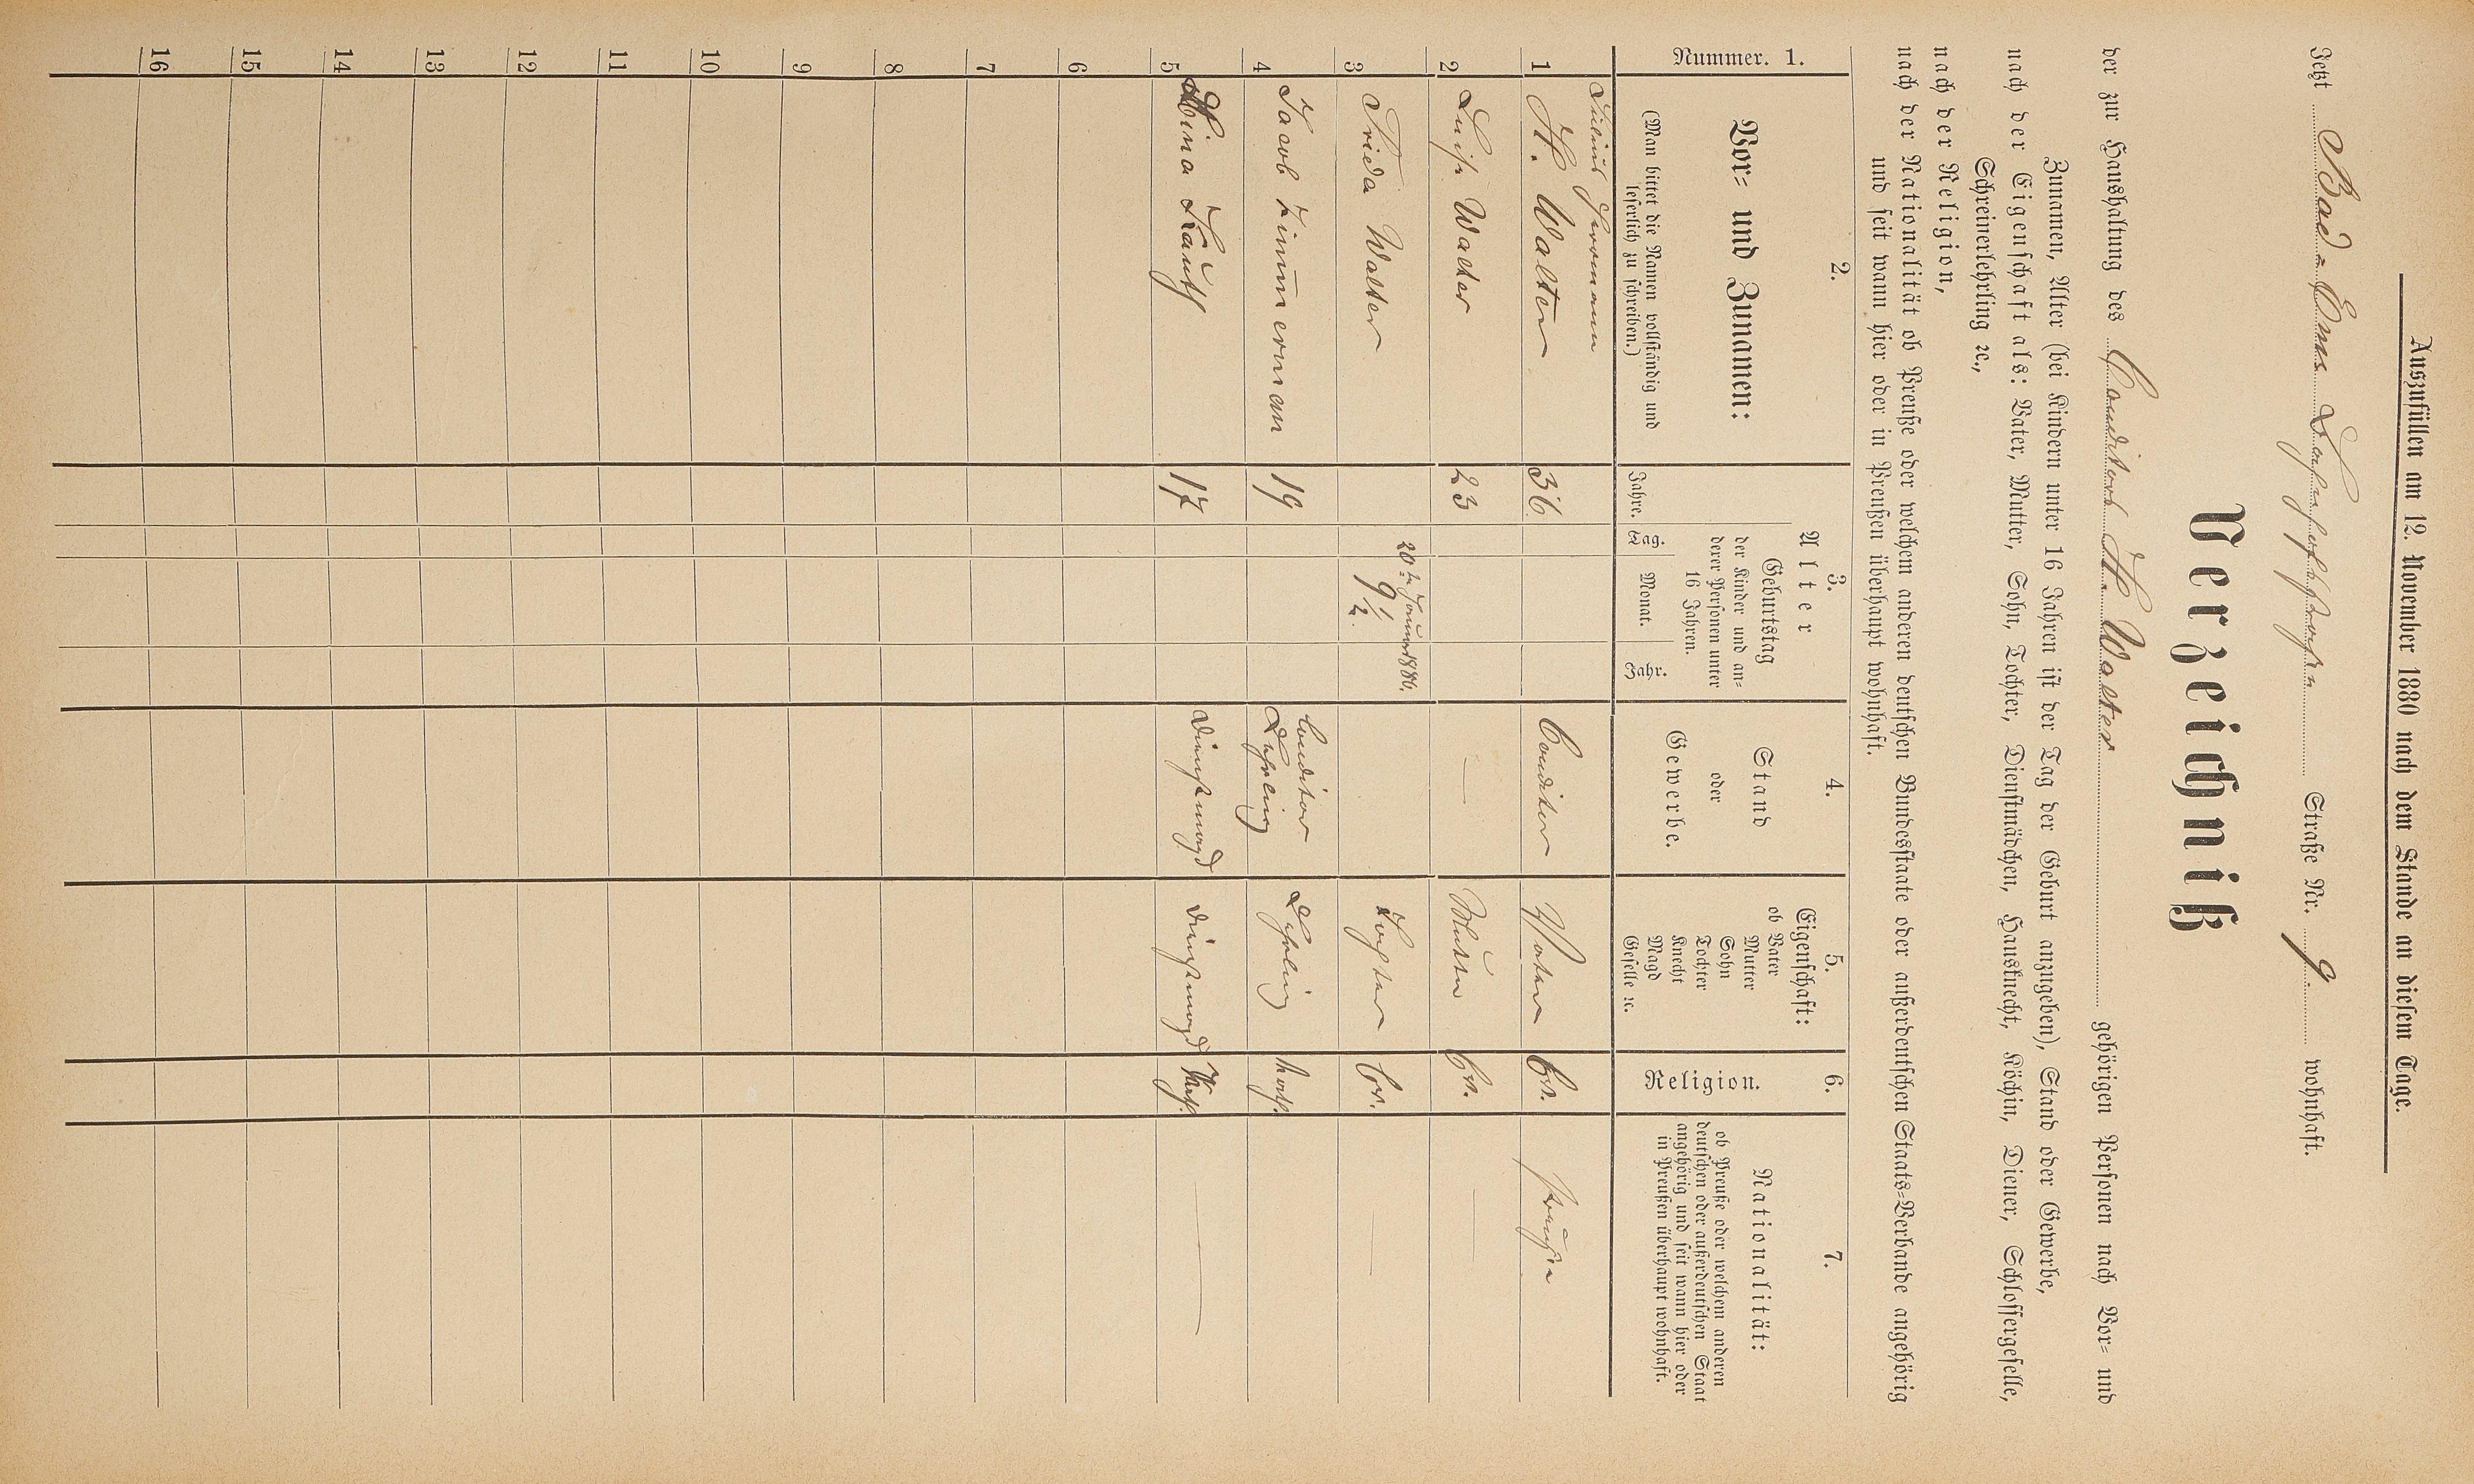 Auszufüllen am 12. November 1880 nach dem Stande an diesem Tage.
Jetzt Bad-Ems Straße Nr. 9. wohnhaft.
Verzeichniß
der zur Haushaltung des Conditors H. Walter gehörigen Personen nach Vor- und
Zunamen, Alter (bei Kindern unter 16 Jahren ist der Tag der Geburt anzugeben), Stand oder Gewerbe,
nach der Eigenschaft als: Vater, Mutter, Sohn, Tochter, Dienstmädchen, Hausknecht, Köchin, Diener, Schlossergeselle,
Schreinerlehrling ꝛc.,
nach der Religion,
nach der Nationalität ob Preuße oder welchem anderen deutschen Bundesstaate oder außerdeutschen Staats-Verbande angehörig
und seit wann hier oder in Preußen überhaupt wohnhaft.
Nummer. 1.
2.
Vor- und Zunamen:
(Man bittet die Namen vollständig und
leserlich zu schreiben.)
3.
Alter
Jahre.
Geburtstag
der Kinder und an-
derer Personen unter
16 Jahren.
Tag. Monat. Jahr.
4.
Stand
oder
Gewerbe.
5.
Eigenschaft:
ob Vater
Mutter
Sohn
Tochter
Knecht
Magd
Geselle ꝛc.
6.
Religion.
7.
Nationalität:
ob Preuße oder welchem anderen
deutschen oder außerdeutschen Staat
angehörig und seit wann hier oder
in Preußen überhaupt wohnhaft.
Julius Hermann
1 H. Walter 36 Conditor Vater Ev. Preuße
2 Luise Walter 23 — Mutter Ev. —
20. Januar 1880.
3 Frieda Walter 9½ Tochter Ev. —
4 Jacob Zimmerman 19 Conditor Lehrling Lehrling Kath.
5 Mina 17 Dienstmagd Dienstmagd Kath. —
6
7
8
9
10
11
12
13
14
15
16